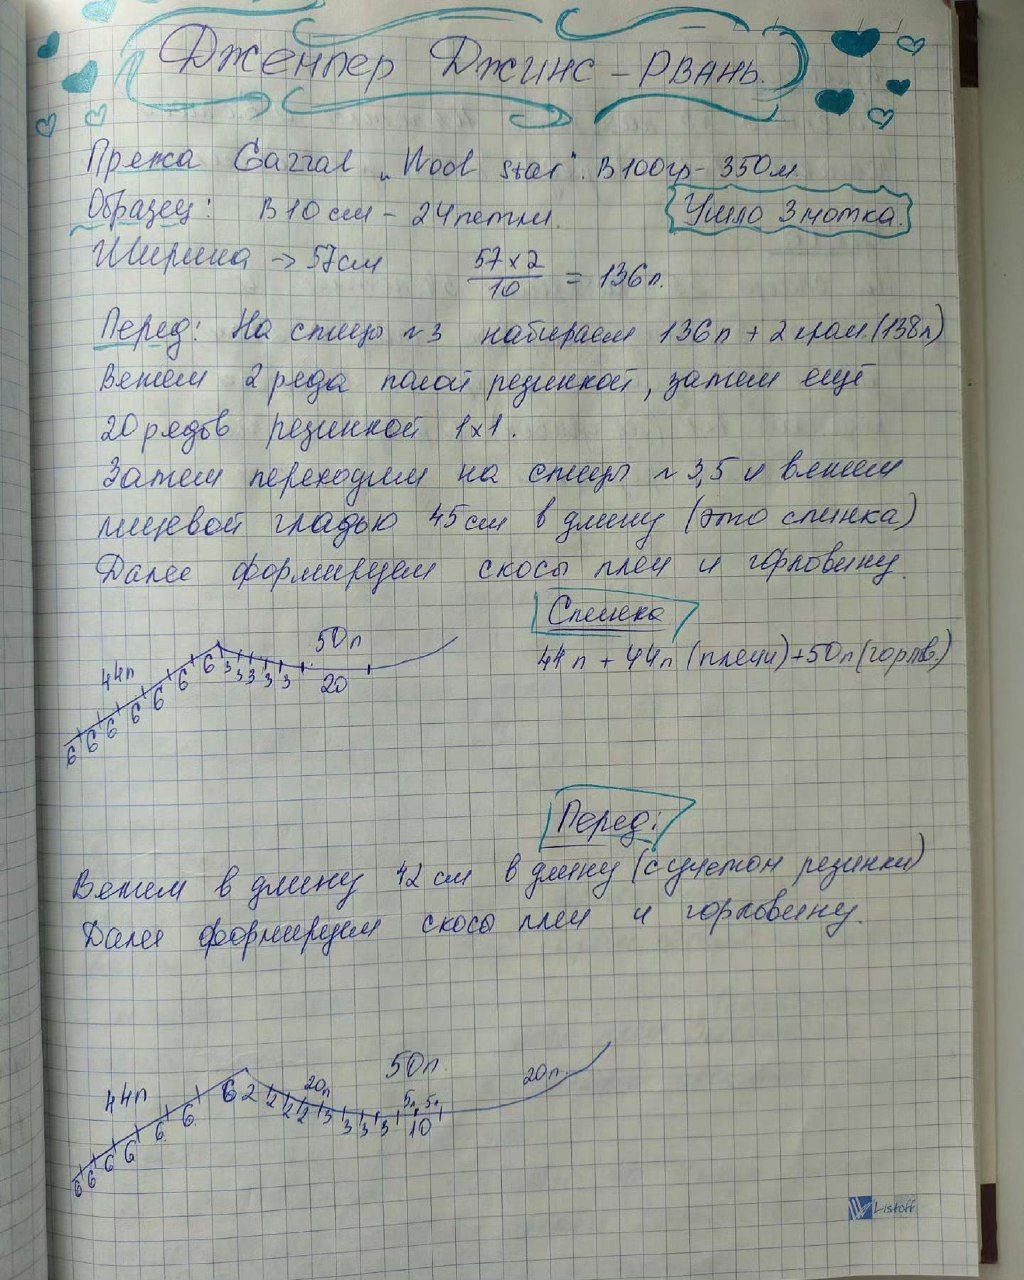 Джемпер Джинс - рвань.
Пряжа Gazzal "Wool Star". В 100гр - 350м.
Образец: В 10 см - 24 петли.
Ушло 3 мотка.
Ширина → 57см 57 x 2 / 10 = 136п.
Перед: На спицы №3 набираем 136п + 2 кром. (138п)
Вяжем 2 ряда полой резинкой, затем ещё
20 рядов резинкой 1х1.
Затем переходим на спицы №3,5 и вяжем
лицевой гладью 45см в длину (это спинка)
Далее формируем скосы плеч и горловину.
Спинка
44п + 44п (плечи) + 50п (горлов.)
44п 50п
6 6 6 6 6 6 6 3 3 3 3 3 20
Перед:
Вяжем в длину 42 см в длину (с учетом резинки)
Далее формируем скосы плеч и горловину.
44п 20п 50п. 20п
6 6 6 6 6 6 6 2 2 2 2 3 3 3 3 5п 5п 10
Listoff